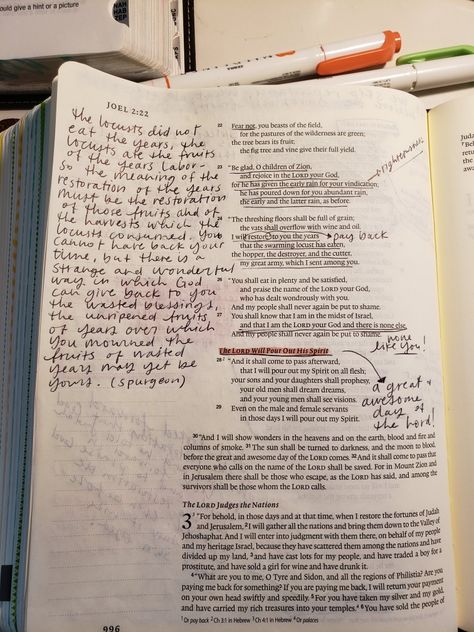 ould give a hint or a picture
NAH
HAB
ZEP
JOEL 2:22
the locusts did not
eat the years, the
locusts ate the fruits
of the years labor-
so the meaning of the
restoration of the years
must be the restoration
of those fruits and of
the harvests which the
locusts consumed. You
cannot have back your
time, but there is a
strange and wonderful
way in which God
can give back to you
the wasted blessings,
the unripened fruits
of years over which
you mourned the
fruits of wasted
years may yet be
yours. (Spurgeon)
22 Fear not, you beasts of the field,
for the pastures of the wilderness are green;
the tree bears its fruit;
the fig tree and vine give their full yield.
23 "Be glad, O children of Zion,
and rejoice in the LORD your God,
for he has given the early rain for your vindication;
righteousness
he has poured down for you abundant rain,
the early and the latter rain, as before.
24 "The threshing floors shall be full of grain;
the vats shall overflow with wine and oil.
25 I will restore to you the years
pay back
that the swarming locust has eaten,
the hopper, the destroyer, and the cutter,
my great army, which I sent among you.
26 "You shall eat in plenty and be satisfied,
and praise the name of the LORD your God,
who has dealt wondrously with you.
And my people shall never again be put to shame.
27 You shall know that I am in the midst of Israel,
and that I am the LORD your God and there is none else.
And my people shall never again be put to shame.
none
like you!
The LORD Will Pour Out His Spirit
28 "And it shall come to pass afterward,
that I will pour out my Spirit on all flesh;
your sons and your daughters shall prophesy,
your old men shall dream dreams,
and your young men shall see visions.
29 Even on the male and female servants
in those days I will pour out my Spirit.
a great +
awesome
day of
the Lord!
30 "And I will show wonders in the heavens and on the earth, blood and fire and
columns of smoke. 31 The sun shall be turned to darkness, and the moon to blood,
before the great and awesome day of the LORD comes. 32 And it shall come to pass that
everyone who calls on the name of the LORD shall be saved. For in Mount Zion and
in Jerusalem there shall be those who escape, as the LORD has said, and among the
survivors shall be those whom the LORD calls.
The LORD Judges the Nations
3 "For behold, in those days and at that time, when I restore the fortunes of Judah
and Jerusalem, 2 I will gather all the nations and bring them down to the Valley of
Jehoshaphat. And I will enter into judgment with them there, on behalf of my people
and my heritage Israel, because they have scattered them among the nations and have
divided up my land, 3 and have cast lots for my people, and have traded a boy for a
prostitute, and have sold a girl for wine and have drunk it.
4 "What are you to me, O Tyre and Sidon, and all the regions of Philistia? Are you
paying me back for something? If you are paying me back, I will return your payment
on your own head swiftly and speedily. 5 For you have taken my silver and my gold,
and have carried my rich treasures into your temples. 6 You have sold the people of
1 Or pay back 2 Ch 3:1 in Hebrew 3 Ch 4:1 in Hebrew 4 Or palaces
996